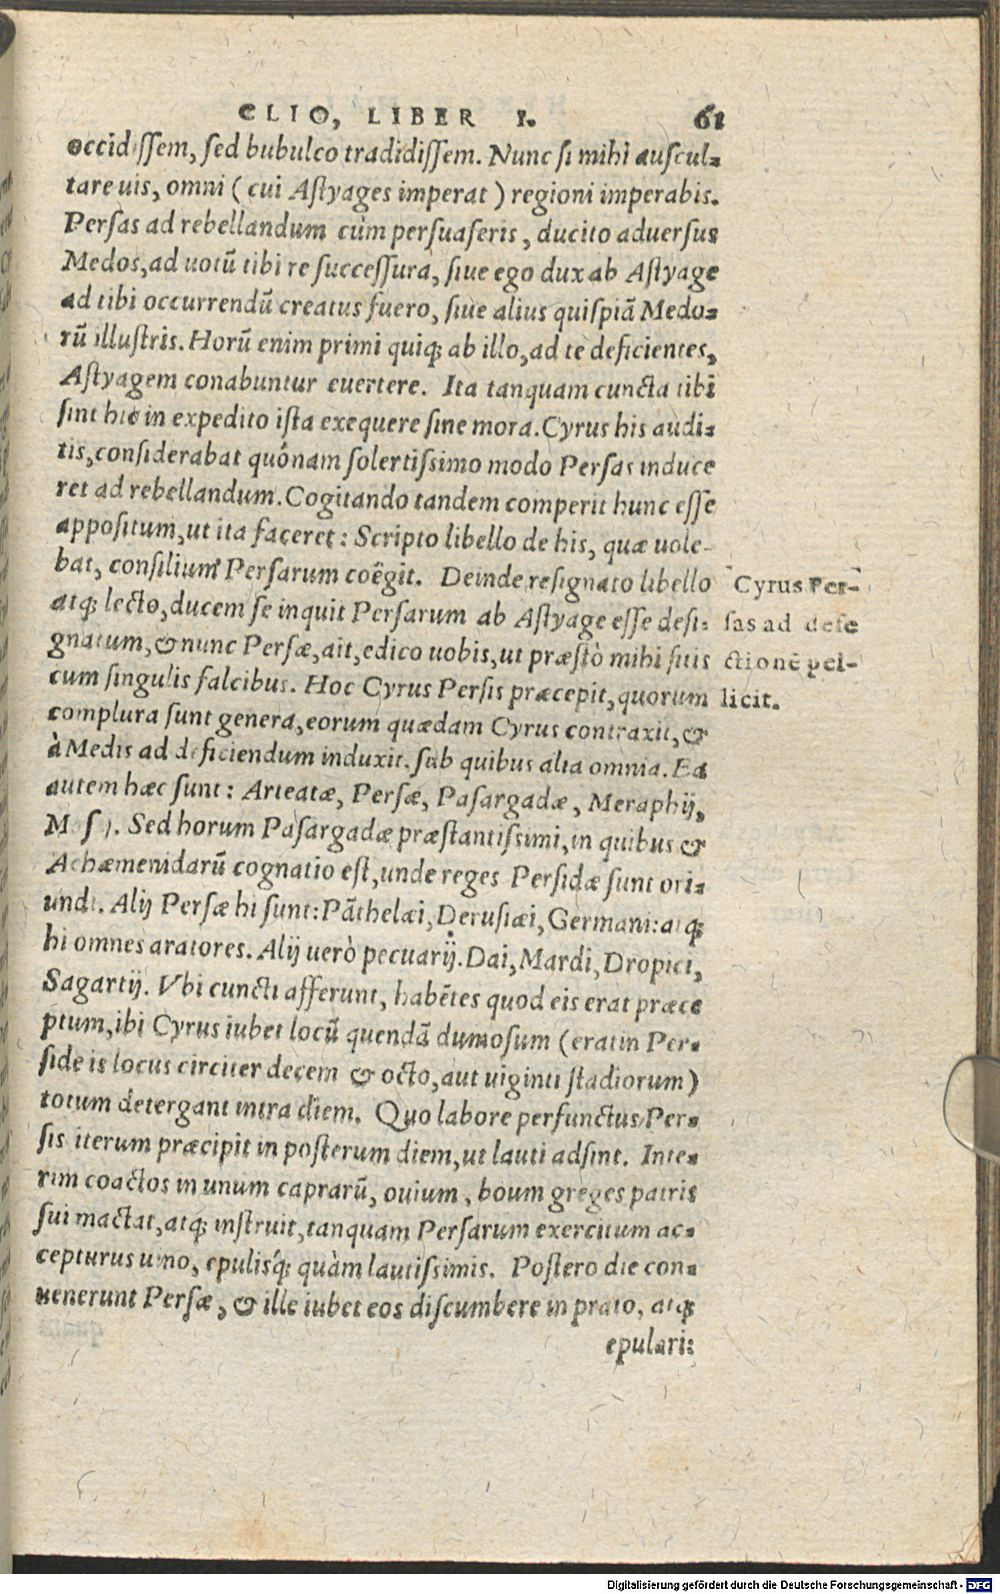 CLIO, LIBER I. 61
occidissem, sed bubulco tradidissem. Nunc si mihi auscul-
tare uis, omni (cui Astyages imperat) regioni imperabis.
Persas ad rebellandum cùm persuaseris, ducito aduersus
Medos, ad uotũ tibi re successura, siue ego dux ab Astyage
ad tibi occurrendũ creatus fuero, siue alius quispiã Medo-
rũ illustris. Horũ enim primi quiq; ab illo, ad te deficientes,
Astyagem conabuntur euertere. Ita tanquam cuncta tibi
sint hic in expedito ista exequere sine mora. Cyrus his audi-
tis, considerabat quónam solertissimo modo Persas induce
ret ad rebellandum. Cogitando tandem comperit hunc esse
appositum, ut ita faceret: Scripto libello de his, quæ uole-
bat, consilium Persarum coëgit. Deinde resignato libello
atq; lecto, ducem se inquit Persarum ab Astyage esse desi-
gnatum, & nunc Persæ, ait, edico uobis, ut præstò mihi sitis
cum singulis falcibus. Hoc Cyrus Persis præcepit, quorum
complura sunt genera, eorum quædam Cyrus contraxit, &
à Medis ad deficiendum induxit. sub quibus alia omnia. Ea
autem hæc sunt: Arteatæ, Persæ, Pasargadæ, Meraphij,
Sed horum Pasargadæ præstantissimi, in quibus &
Achæmenidarũ cognatio est, unde reges Persidæ sunt ori-
undi. Alij Persæ hi sunt: Pãthelæi, Derusiæi, Germani: atq;
hi omnes aratores. Alij uerò pecuarij. Dai, Mardi, Dropici,
Sagartij. Vbi cuncti afferunt, habẽtes quod eis erat præce
ptum, ibi Cyrus iubet locũ quendã dumosum (erat in Per-
side is locus circiter decem & octo, aut uiginti stadiorum)
totum detergant intra diem. Quo labore perfunctus, Per-
sis iterum præcipit in posterum diem, ut lauti adsint. Inte-
rim coactos in unum caprarũ, ouium, boum greges patris
sui mactat, atq; instruit, tanquam Persarum exercitum ac-
cepturus uino, epulisq́; quàm lautissimis. Postero die con-
uenerunt Persæ, & ille iubet eos discumbere in prato, atq;
epulari:
Cyrus Per-
sas ad defe
ctionẽ pel-
licit.
Digitalisierung gefördert durch die Deutsche Forschungsgemeinschaft - DFG